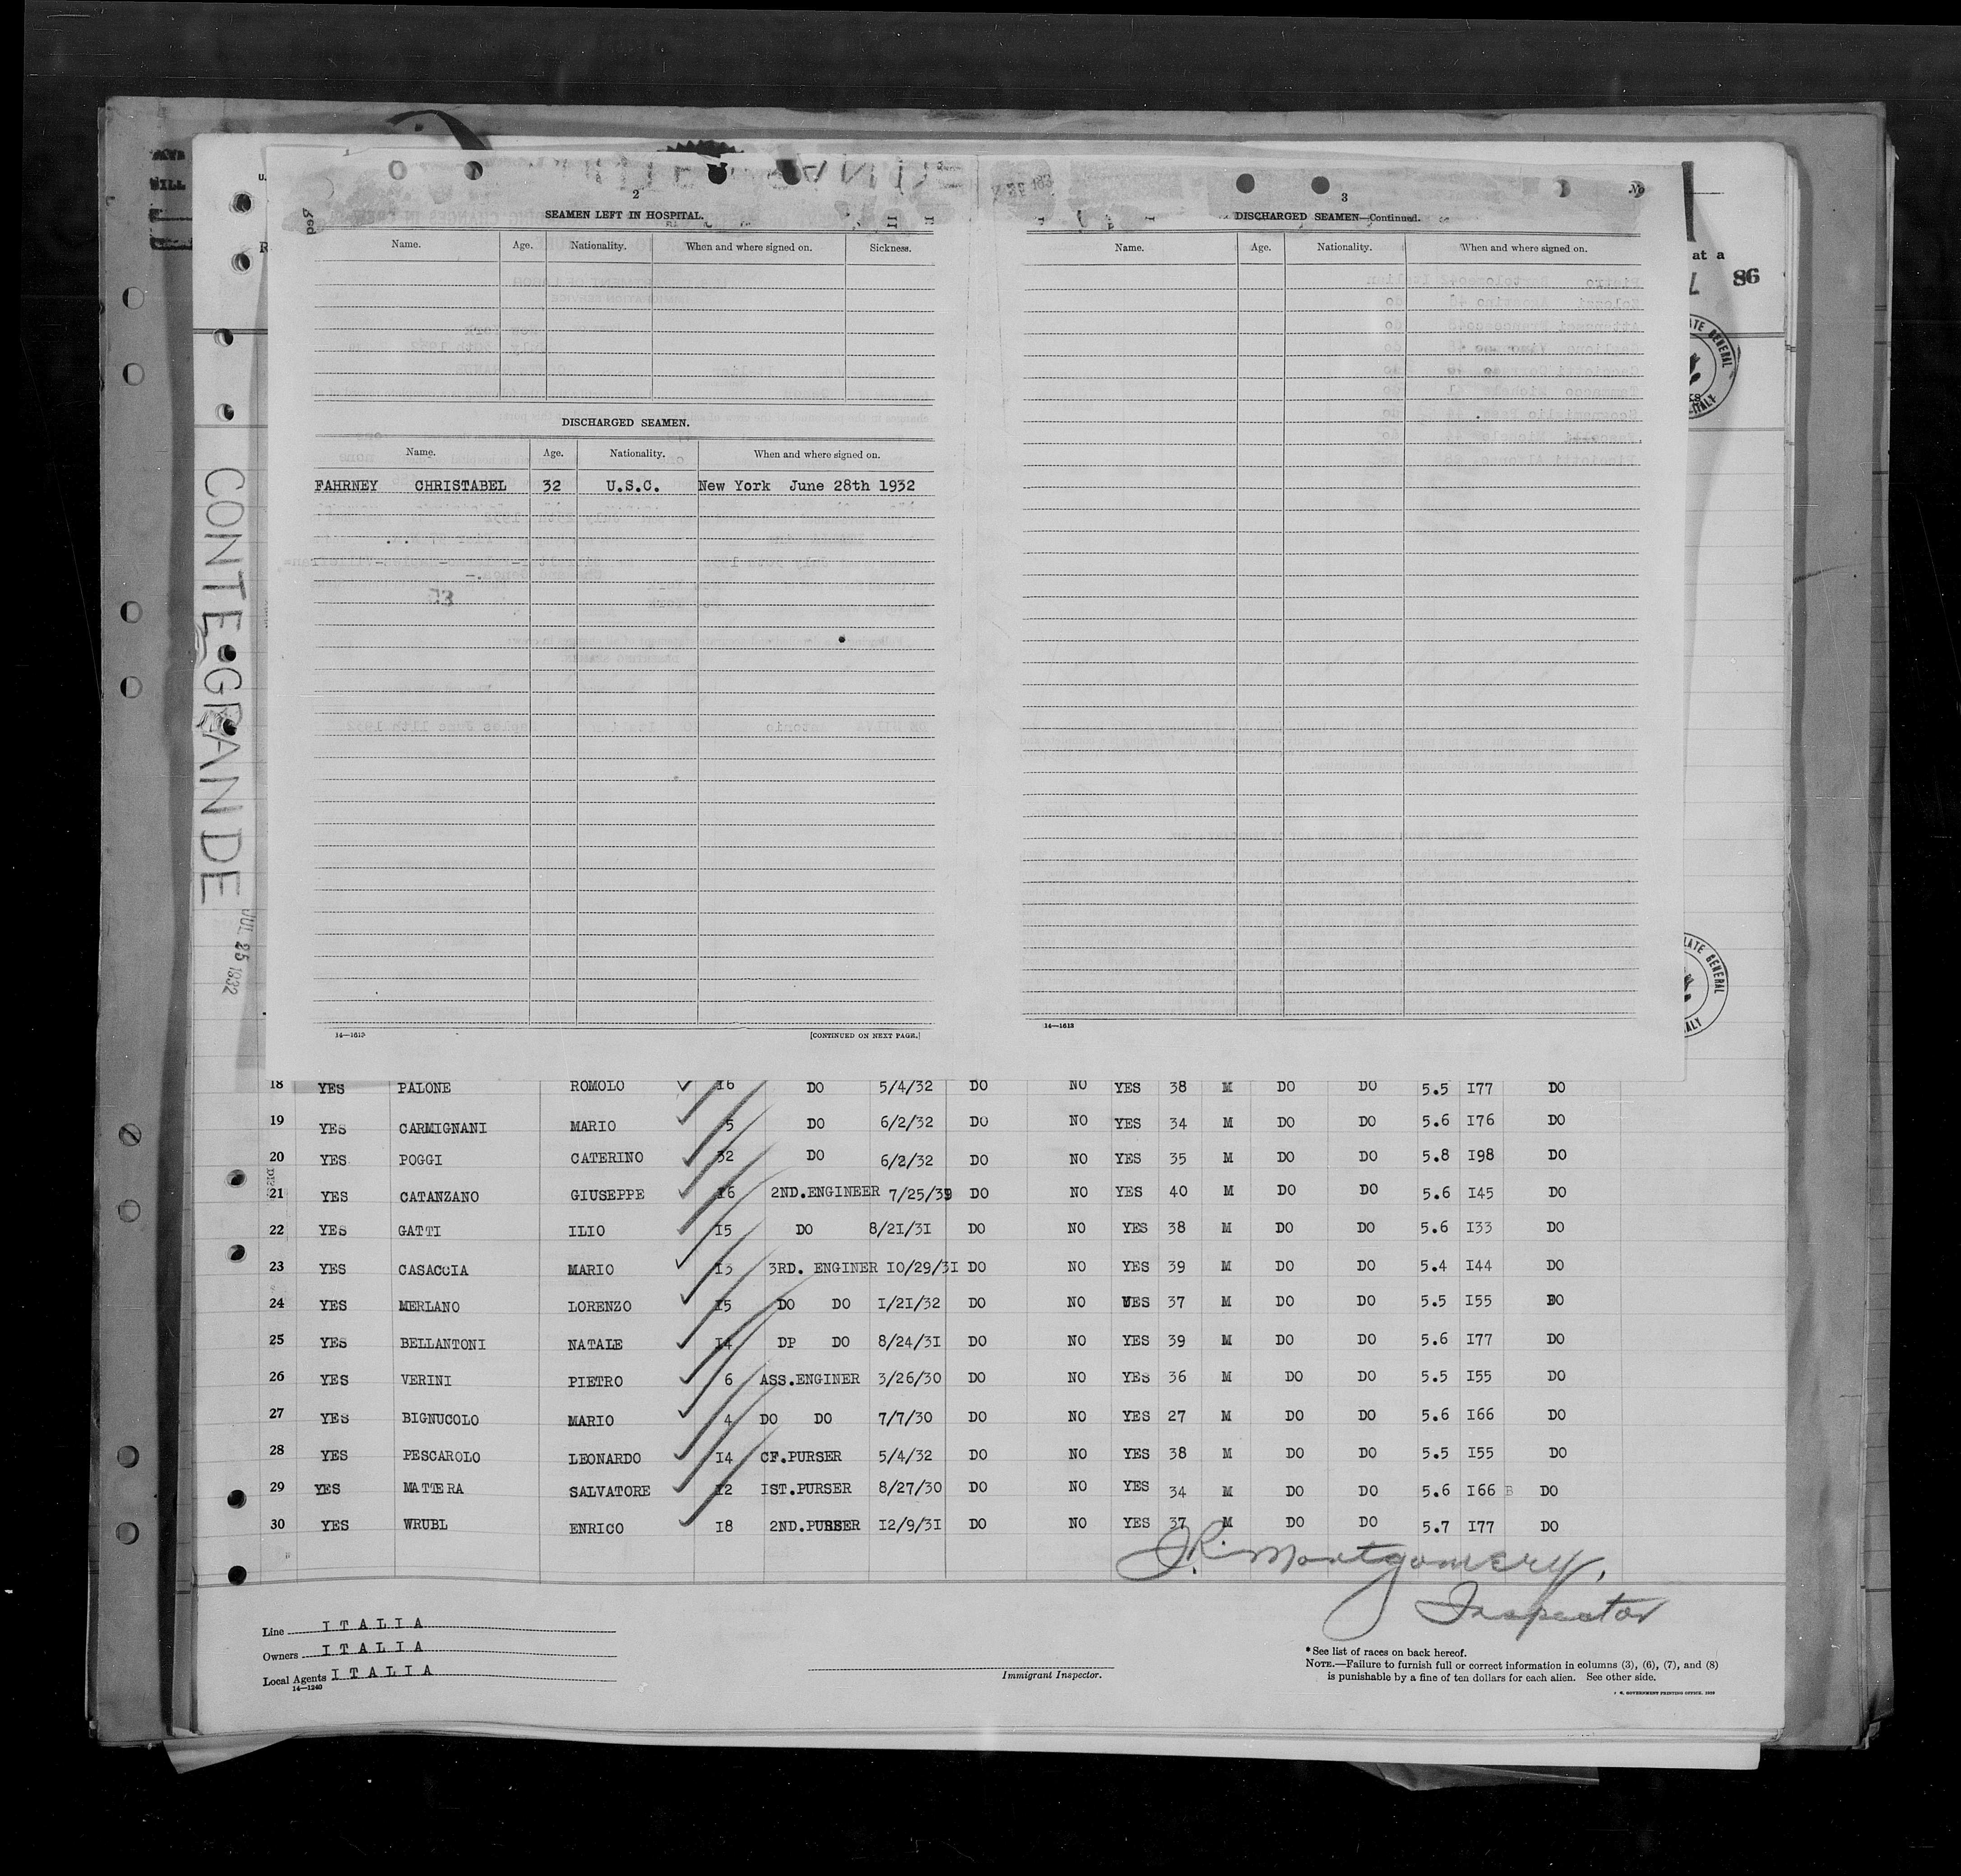 2
SEAMEN LEFT IN HOSPITAL.
Name. Age. Nationality. When and where signed on. Sickness.
DISCHARGED SEAMEN.
Name. Age. Nationality. When and where signed on.
FAHRNEY CHRISTABEL 32 U.S.C. New York June 28th 1932
14—1613
[CONTINUED ON NEXT PAGE.]
3
DISCHARGED SEAMEN—Continued.
Name. Age. Nationality. When and where signed on.
14—1613
at a
86
CONTE GRANDE
JUL 25 1932
18 YES PALONE ROMOLO 16 DO 5/4/32 DO NO YES 38 M DO DO 5.5 I77 DO
19 YES CARMIGNANI MARIO 5 DO 6/2/32 DO NO YES 34 M DO DO 5.6 I76 DO
20 YES POGGI CATERINO 32 DO 6/2/32 DO NO YES 35 M DO DO 5.8 I98 DO
21 YES CATANZANO GIUSEPPE I6 2ND.ENGINEER 7/25/39 DO NO YES 40 M DO DO 5.6 I45 DO
22 YES GATTI ILIO I5 DO 8/2I/3I DO NO YES 38 M DO DO 5.6 I33 DO
23 YES CASACCIA MARIO I3 3RD. ENGINER IO/29/3I DO NO YES 39 M DO DO 5.4 I44 DO
24 YES MERLANO LORENZO I5 DO DO I/2I/32 DO NO YES 37 M DO DO 5.5 I55 DO
25 YES BELLANTONI NATALE I4 DP DO 8/24/3I DO NO YES 39 M DO DO 5.6 I77 DO
26 YES VERINI PIETRO 6 ASS.ENGINER 3/26/30 DO NO YES 36 M DO DO 5.5 I55 DO
27 YES BIGNUCOLO MARIO 4 DO DO 7/7/30 DO NO YES 27 M DO DO 5.6 I66 DO
28 YES PESCAROLO LEONARDO I4 CF.PURSER 5/4/32 DO NO YES 38 M DO DO 5.5 I55 DO
29 YES MATTERA SALVATORE I2 IST.PURSER 8/27/30 DO NO YES 34 M DO DO 5.6 I66 B DO
30 YES WRUBL ENRICO I8 2ND.PURSER I2/9/3I DO NO YES 37 M DO DO 5.7 I77 DO
J.R. Montgomery,
Inspector
Line ITALIA
Owners ITALIA
Local Agents ITALIA
14—1240
Immigrant Inspector.
* See list of races on back hereof.
NOTE.—Failure to furnish full or correct information in columns (3), (6), (7), and (8)
is punishable by a fine of ten dollars for each alien. See other side.